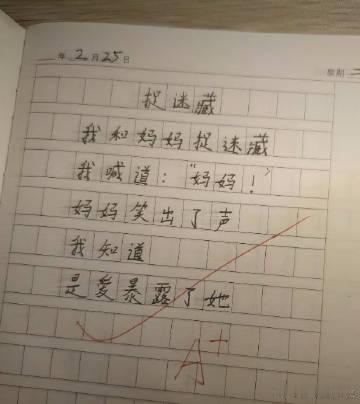 年2月25日
星期
捉迷藏
我和妈妈捉迷藏
我喊道：“妈妈！”
妈妈笑出了声
我知道
是爱暴露了她
A+